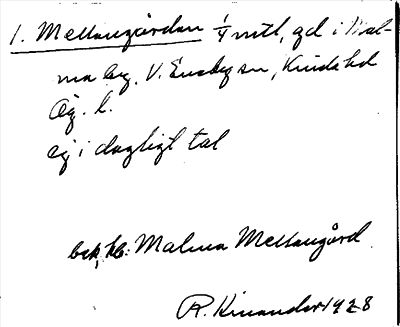 1. Mellangården 1/4 mtl, gd i Mal-
ma by, V. Eneby sn, Kinda hd
Ög. l.
ej i dagligt tal
bek, kb: Malma Mellangård
R. Kinander 1928